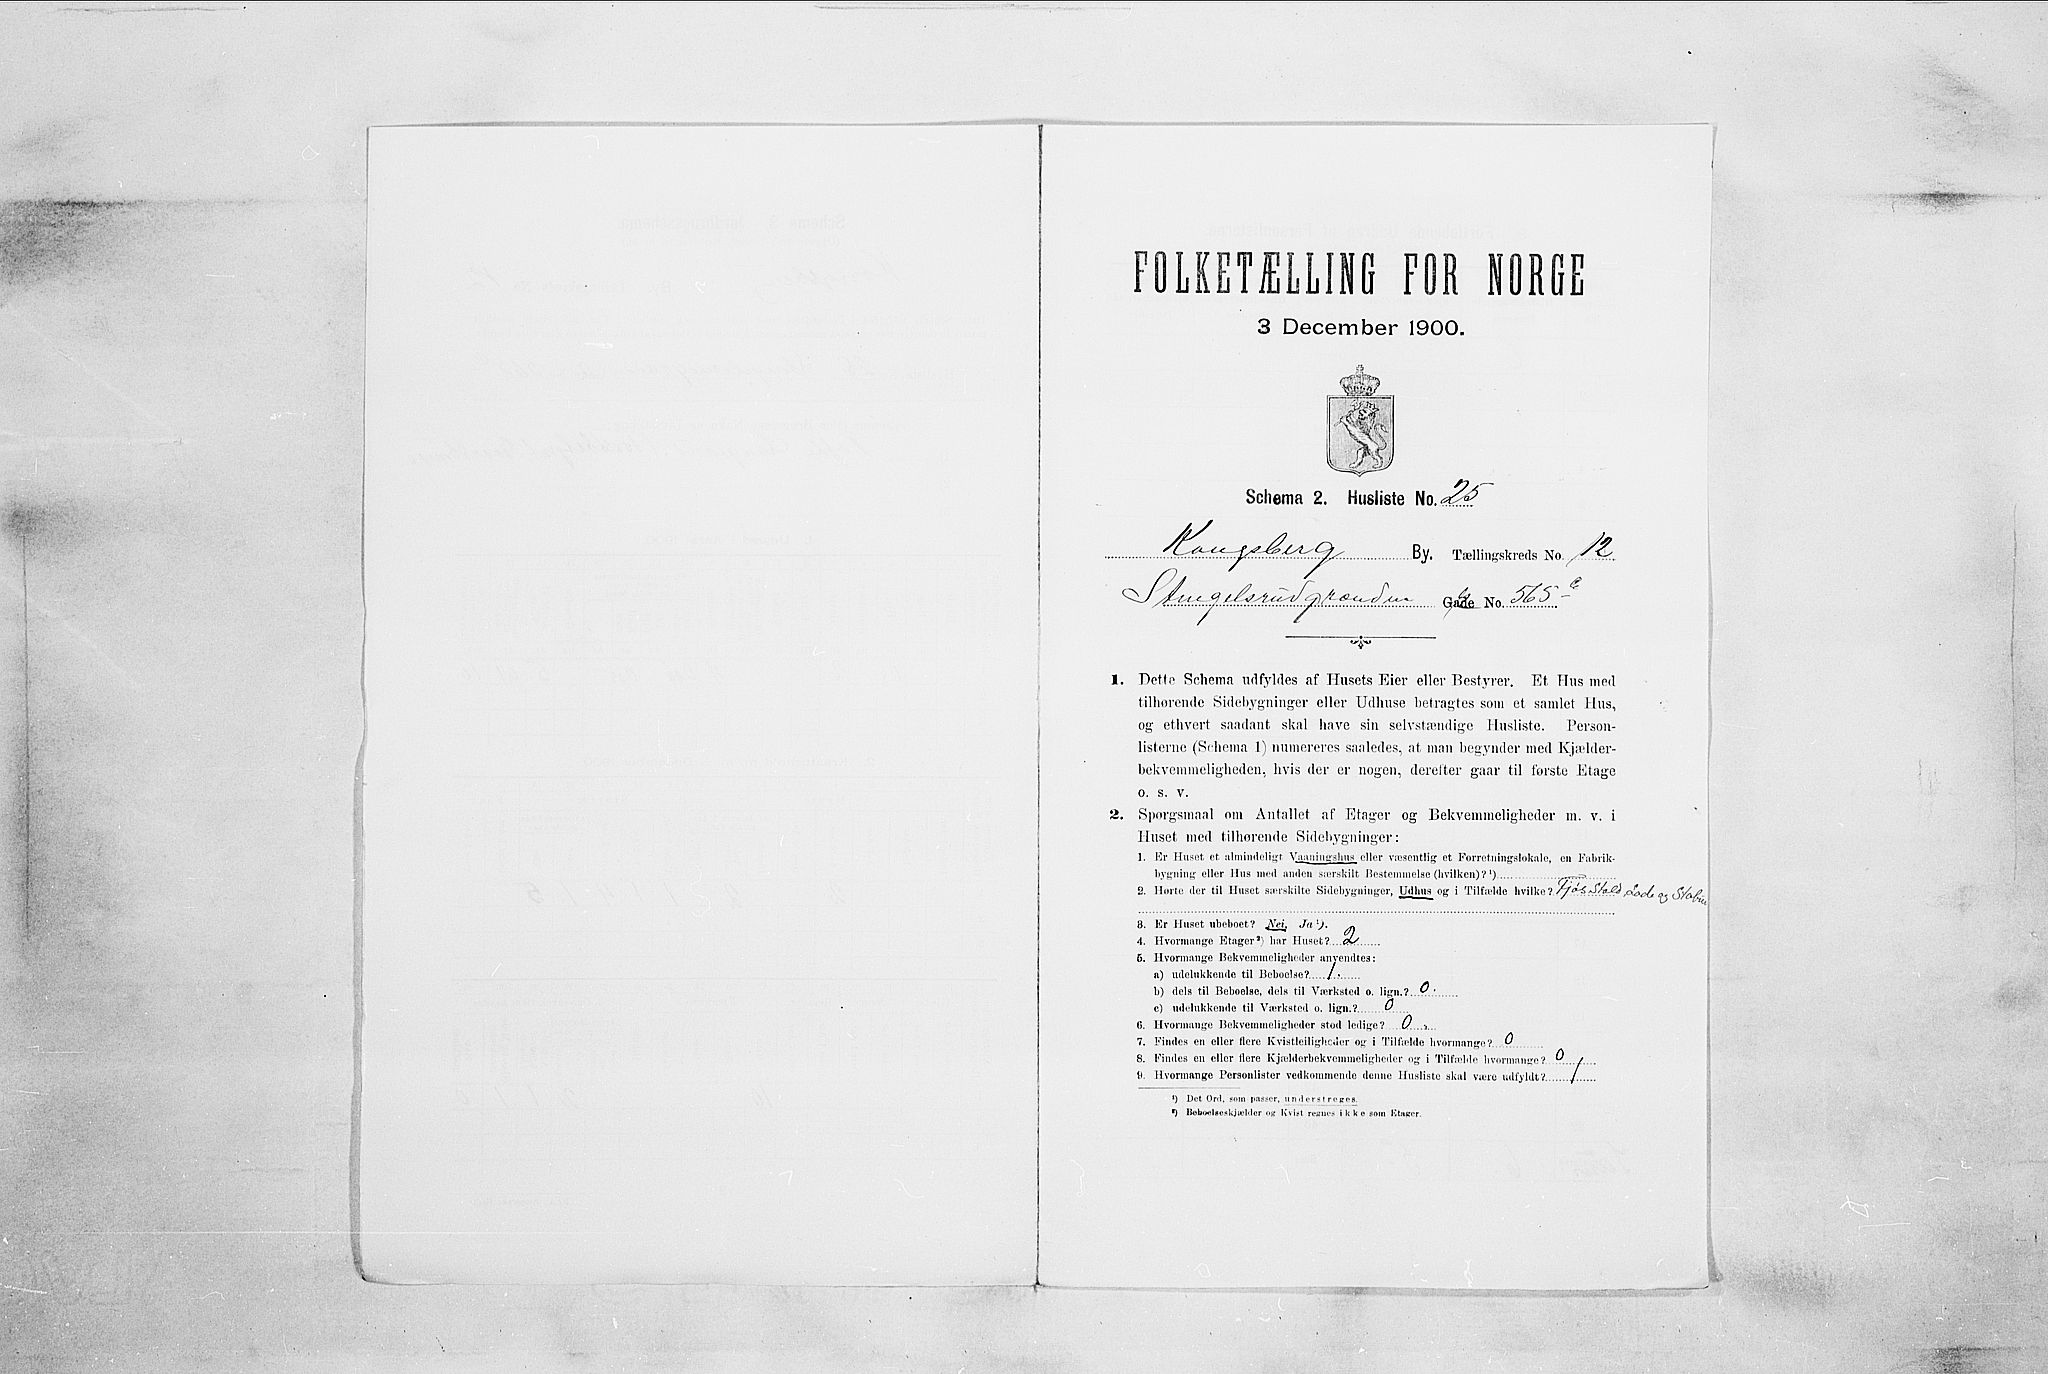 FOLKETÆLLING FOR NORGE
3 December 1900.
Schema 2. Husliste No. 25
Kongsberg By. Tællingskreds No. 12
Stengelsrudgrænden Gade No. 565 c
1. Dette Schema udfyldes af Husets Eier eller Bestyrer. Et Hus med
tilhørende Sidebygninger eller Udhuse betragtes som et samlet Hus,
og ethvert saadant skal have sin selvstændige Husliste. Person-
listerne (Schema 1) numereres saaledes, at man begynder med Kjælder-
bekvemmeligheden, hvis der er nogen, derefter gaar til første Etage
o. s. v.
2. Spørgsmaal om Antallet af Etager og Bekvemmeligheder m. v. i
Huset med tilhørende Sidebygninger:
1. Er Huset et almindeligt Vaaningshus eller væsentlig et Forretningslokale, en Fabrik-
bygning eller Hus med anden særskilt Bestemmelse (hvilken)? ¹)
2. Hørte der til Huset særskilte Sidebygninger, Udhus og i Tilfælde hvilke? Fjøs Stald Lade og Stabur
3. Er Huset ubeboet? Nei, Ja ¹).
4. Hvormange Etager ²) har Huset? 2
5. Hvormange Bekvemmeligheder anvendtes:
a) udelukkende til Beboelse? 1.
b) dels til Beboelse, dels til Værksted o. lign.? 0.
c) udelukkende til Værksted o. lign.? 0
6. Hvormange Bekvemmeligheder stod ledige? 0
7. Findes en eller flere Kvistleiligheder og i Tilfælde hvormange? 0
8. Findes en eller flere Kjælderbekvemmeligheder og i Tilfælde hvormange? 0
9. Hvormange Personlister vedkommende denne Husliste skal være udfyldt? 1
¹) Det Ord, som passer, understreges.
²) Beboelseskjælder og Kvist regnes ikke som Etager.